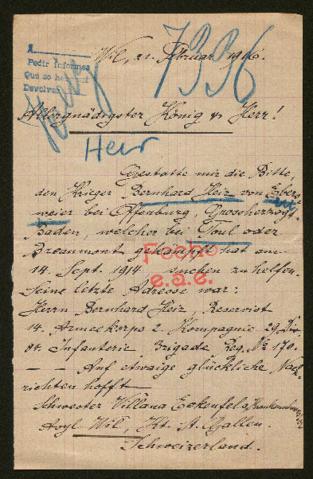 A
Pedir informes
Que se
Devolver
Wil, 21. Februar 1916.
7336
Allergnädigster König u. Herr!
Heir
Gestatte mir die Bitte,
den Krieger Bernhard Heiz von
meier bei Offenburg, Grossherzogt.
Baden, welcher bei Toul oder
Breaumont gekämpft hat am
14. Sept. 1914 suchen zu helfen.
Fecho
e.a.e.
Seine letzte Adresse war:
Herrn Bernhard Heiz, Reservist
14. Armeekorps 2. Kompagnie 29. Div
84. Infanterie Brigade Reg. No 170.
— Auf etwaige glückliche Nach
richten hofft
Schwester Villana
Asyl Wil, Kt. St. Gallen.
Schweizerland.